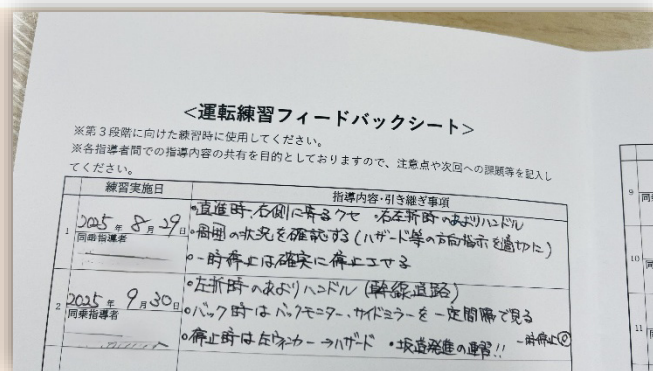 <運転練習フィードバックシート>
※第3段階に向けた練習時に使用してください。
※各指導者間での指導内容の共有を目的としておりますので、注意点や次回への課題等を記入し
てください。
練習実施日 指導内容・引き継ぎ事項
1 2025年 8月29日
同乗指導者
•直進時、右側に寄るクセ •右左折時のあおりハンドル
•周囲の状況を確認する(ハザード等の方向指示を適切に)
•一時停止は確実に停止させる
2 2025年 9月30日
同乗指導者
•左折時のあおりハンドル(幹線道路)
•バック時はバックモニター、サイドミラーを一定間隔で見る
•停止時は左ウィンカー→ハザード •坂道発進の練習!! 一時停止◎
9 同
10 同
11